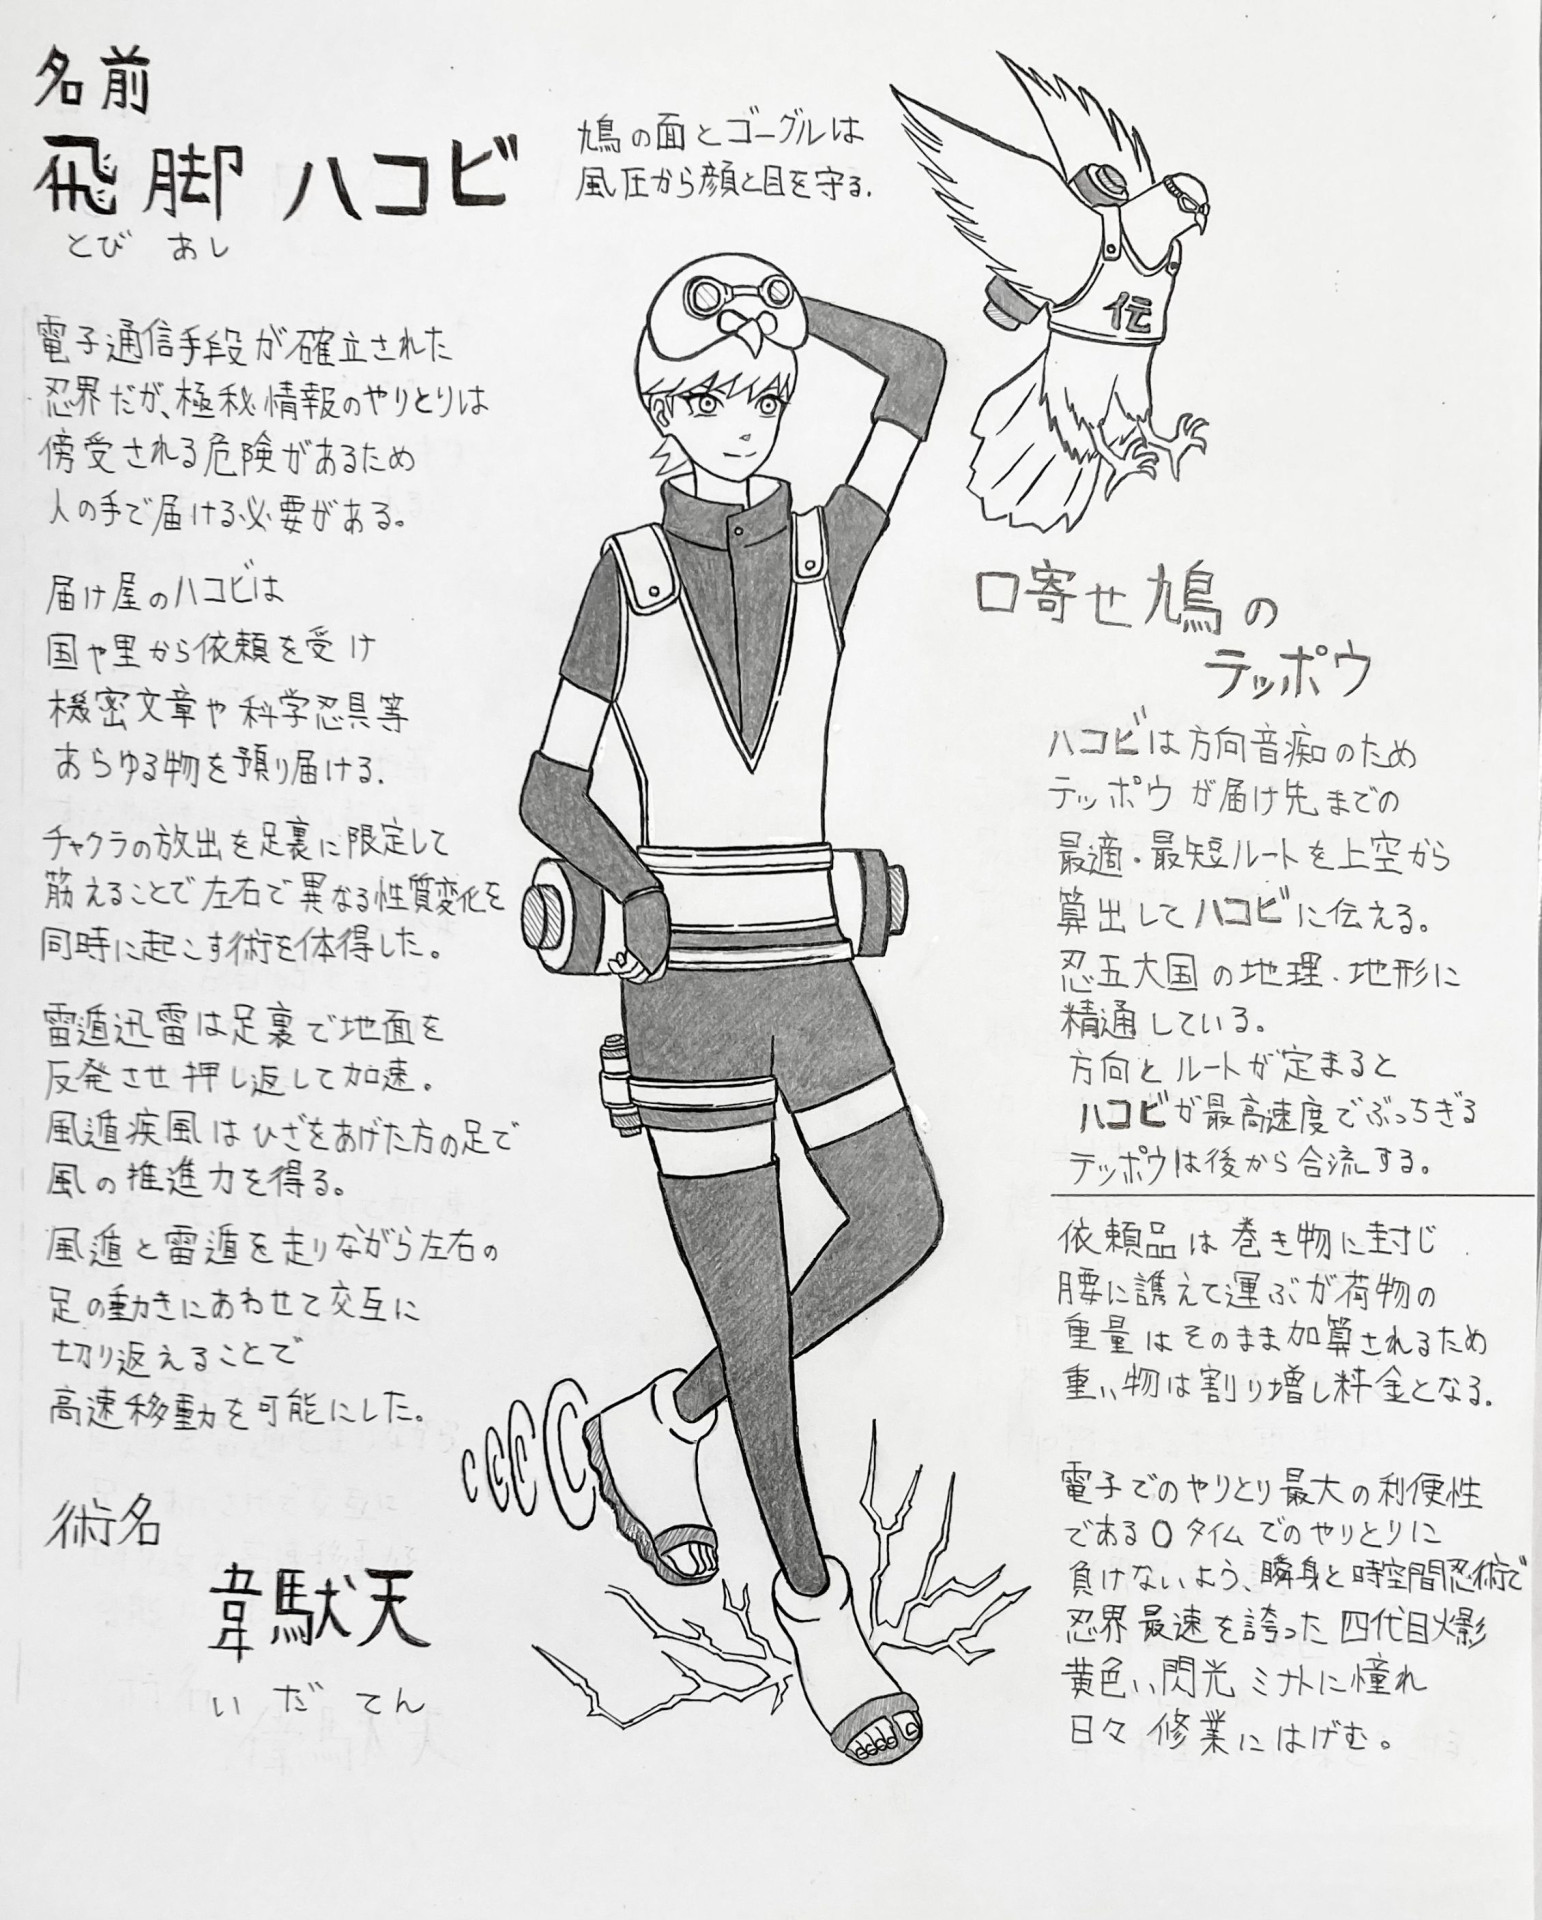 名前
飛脚 ハコビ
とび あし
鳩の面とゴーグルは
風圧から顔と目を守る.
電子通信手段が確立された
忍界だが、極秘情報のやりとりは
傍受される危険があるため
人の手で届ける必要がある。
届け屋のハコビは
国や里から依頼を受け
機密文章や科学忍具等
あらゆる物を預り届ける.
チャクラの放出を足裏に限定して
筋えることで左右で異なる性質変化を
同時に起こす術を体得した。
雷遁迅雷は足裏で地面を
反発させ押し返して加速。
風遁疾風はひざをあげた方の足で
風の推進力を得る。
風遁と雷遁を走りながら左右の
足の動きにあわせて交互に
切り返えることで
高速移動を可能にした。
術名
韋駄天
いだてん
伝
口寄せ鳩の
テッポウ
ハコビは方向音痴のため
テッポウが届け先までの
最適・最短ルートを上空から
算出してハコビに伝える。
忍五大国の地理・地形に
精通している。
方向とルートが定まると
ハコビが最高速度でぶっちぎる
テッポウは後から合流する。
依頼品は巻き物に封じ
腰に携えて運ぶが荷物の
重量はそのまま加算されるため
重い物は割り増し料金となる.
電子でのやりとり最大の利便性
である0タイムでのやりとりに
負けないよう、瞬身と時空間忍術で
忍界最速を誇った四代目火影
黄色い閃光ミナトに憧れ
日々修業にはげむ。